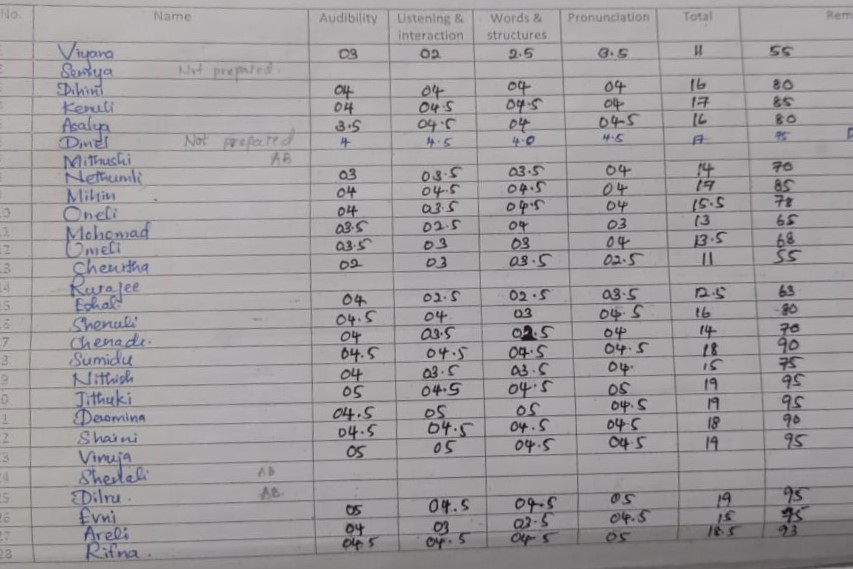 No. Name Audibility Listening & interaction Words & structures Pronunciation Total Rem
Viyana 03 02 2.5 3.5 11 55
Senuya Not prepared.
Dihini 04 04 04 04 16 80
Kenuli 04 04.5 04.5 04 17 85
Asalya 3.5 04.5 04 04.5 16 80
Dinel Not prepared 4 4.5 4.0 4.5 17
Mithushi AB
Nethumli 03 03.5 03.5 04 14 70
Mihin 04 04.5 04.5 04 17 85
10 Oneli 04 03.5 04.5 04 15.5 78
11 Mohomad 03.5 02.5 04 03 13 65
12 Omeli 03.5 03 03 04 13.5 68
13 02 03 03.5 02.5 11 55
14
15 Eshal 04 02.5 02.5 03.5 12.5 63
16 Shenuli 04.5 04 03 04.5 16 80
17 Chenadi. 04 03.5 02.5 04 14 70
18 Sumidu 04.5 04.5 04.5 04.5 18 90
19 Nithish 04 03.5 03.5 04. 15 75
20 Jithuki 05 04.5 04.5 05 19 95
21 04.5 05 05 04.5 19 95
22 Shaini 04.5 04.5 04.5 04.5 18 90
23 Vinuja 05 05 04.5 04.5 19 95
24 AB
25 Dilru. AB
26 Evni 05 04.5 04.5 05 19 95
27 Areli 04 03 03.5 04.5 15
28 Rifna. 04.5 04.5 04.5 05 18.5 93